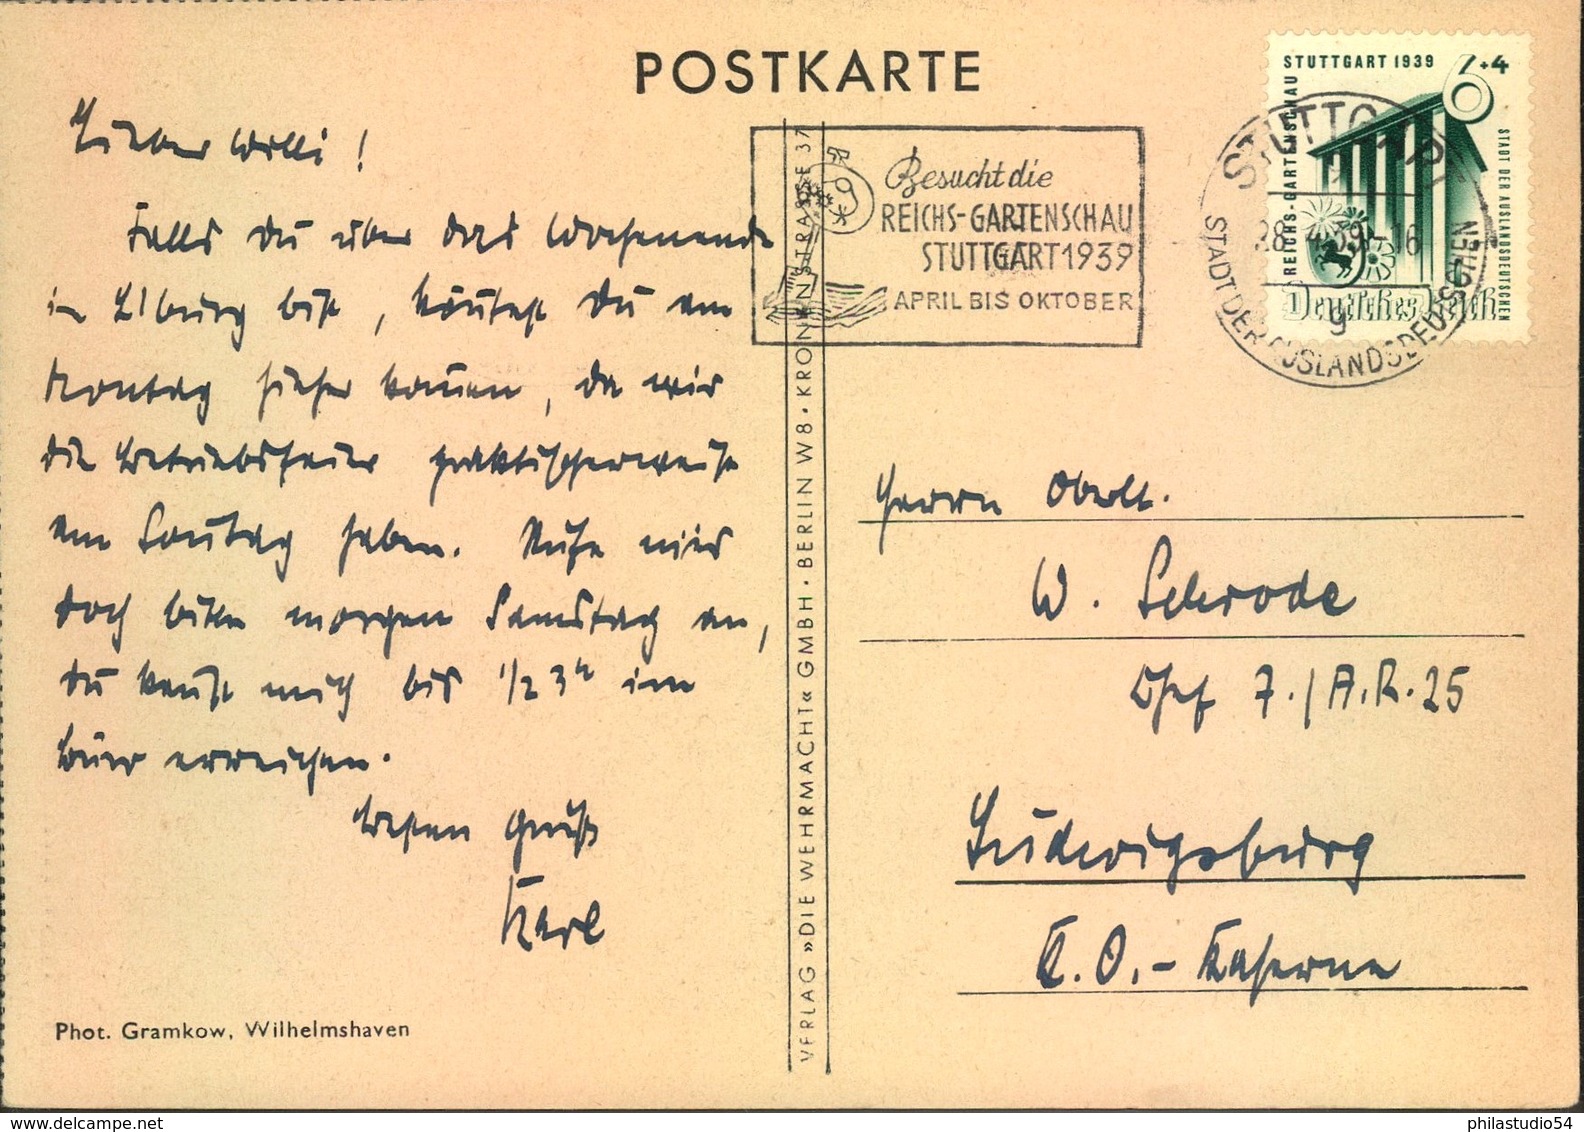 POSTKARTE
Lieber Willi!
Falls Du über das Wochenende
in L'burg bist, könntest Du am
Montag hieher kommen, da wir
die Betriebsfeier praktischerweise
am Sonntag haben. Rufe mir
doch bitte morgen Samstag an,
Du kannst mich bis 1/2 3h im
Büro erreichen.
Besten Gruß
Karl
Phot. Gramkow, Wilhelmshaven
VERLAG »DIE WEHRMACHT« GMBH · BERLIN W 8 · KRONENSTRASSE 37
Besucht die
REICHS-GARTENSCHAU
STUTTGART 1939
APRIL BIS OKTOBER
STUTTGART
STADT DER AUSLANDSDEUTSCHEN
STUTTGART 1939
6+4
REICHS-GARTENSCHAU
STADT DER AUSLANDSDEUTSCHEN
Deutsches Reich
Herrn Oberlt.
W. Schrode
Chef 7./A.R.25
Ludwigsburg
K.O.-Kaserne
philastudio54